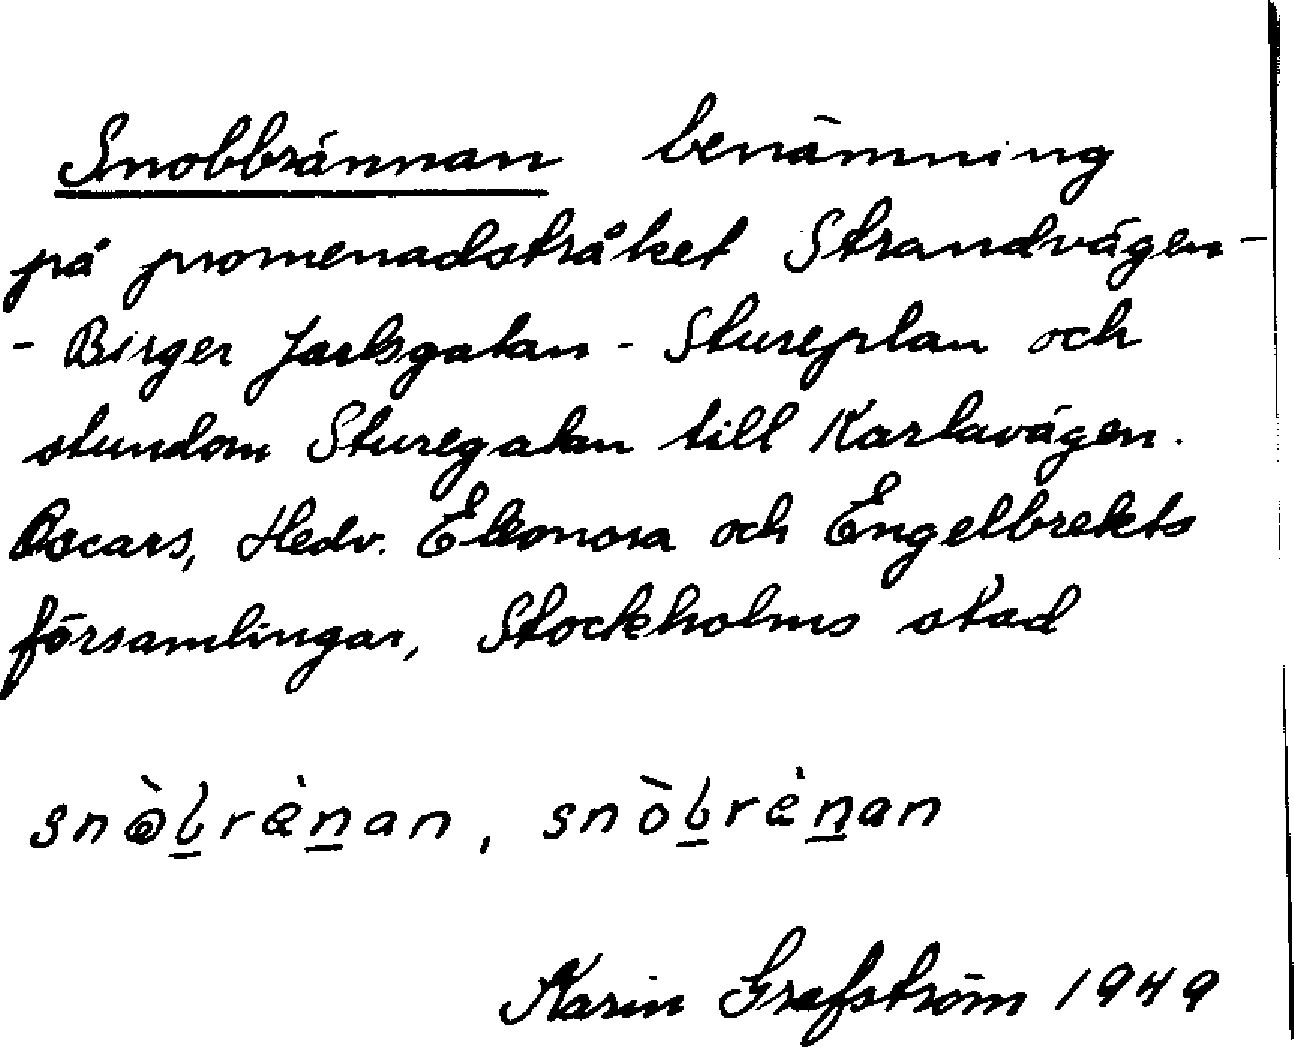 Snobbrännan benämning
på promenadstråket Strandvägen -
- Birger Jarlsgatan - Stureplan och
stundom Sturegatan till Karlavägen.
Oscars, Hedv. Eleonora och Engelbrekts
församlingar, Stockholms stad
snòb̲rènan, snòb̲rènan
Karin Grafström 1949